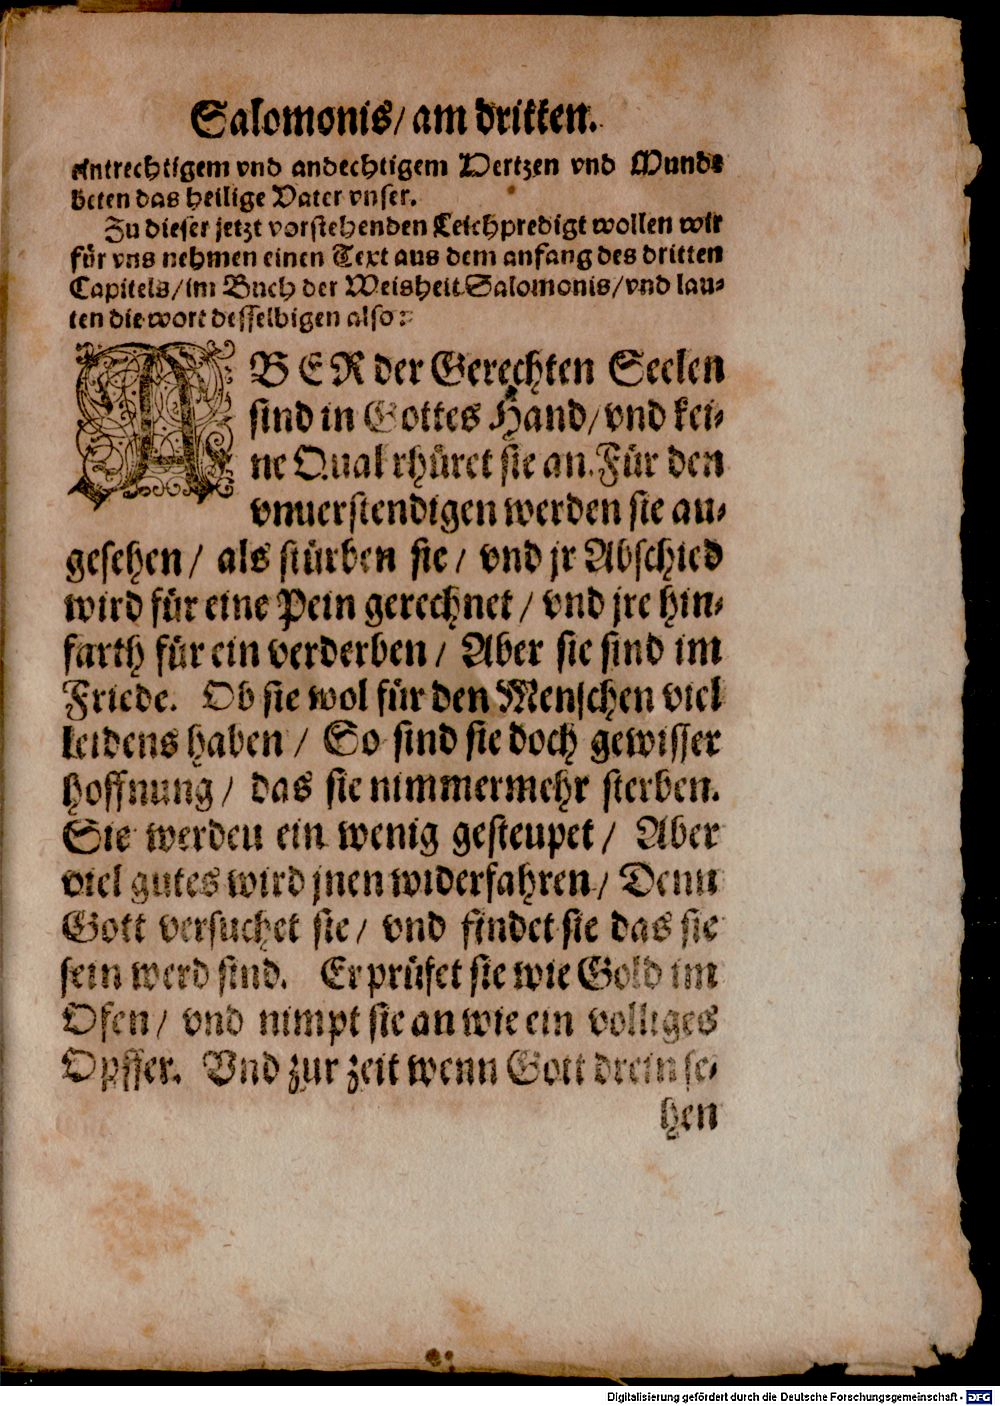 Salomonis/ am dritten.
eintrechtigem vnd andechtigem Hertzen vnd Munde
beten das heilige Vater vnser.
Zu dieser jetzt vorstehenden Leichpredigt wollen wir
für vns nehmen einen Text aus dem anfang des dritten
Capitels/ im Buch der Weisheit Salomonis/ vnd lau-
ten die wort desselbigen also:
ABER der Gerechten Seelen
sind in Gottes Hand/ vnd kei-
ne Qual rhüret sie an. Für den
vnuerstendigen werden sie an-
gesehen/ als stürben sie/ vnd jr Abschied
wird für eine Pein gerechnet/ vnd jre hin-
farth für ein verderben/ Aber sie sind im
Friede. Ob sie wol für den Menschen viel
leidens haben/ So sind sie doch gewisser
hoffnung/ das sie nimmermehr sterben.
Sie werden ein wenig gesteupet/ Aber
viel gutes wird jnen widerfahren/ Denn
Gott versuchet sie/ vnd findet sie das sie
sein werd sind. Er prüfet sie wie Gold im
Ofen/ vnd nimpt sie an wie ein volliges
Opffer. Vnd zur zeit wenn Gott drein se-
hen
Digitalisierung gefördert durch die Deutsche Forschungsgemeinschaft - DFG